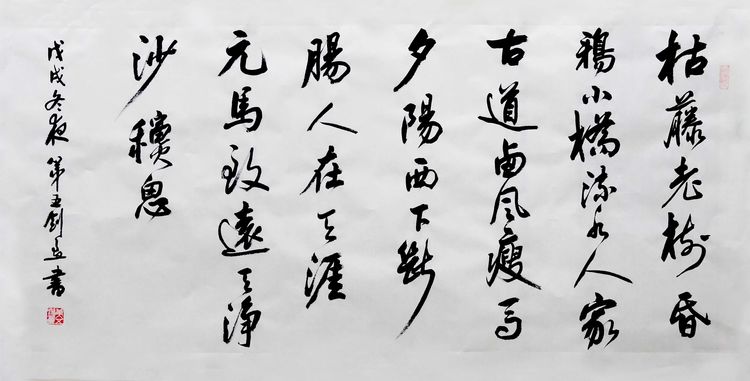 枯藤老樹昏
鴉小橋流水人家
古道西風瘦馬
夕陽西下斷
腸人在天涯
元馬致遠天淨
沙穐思
戊戌冬夜 第五剑書